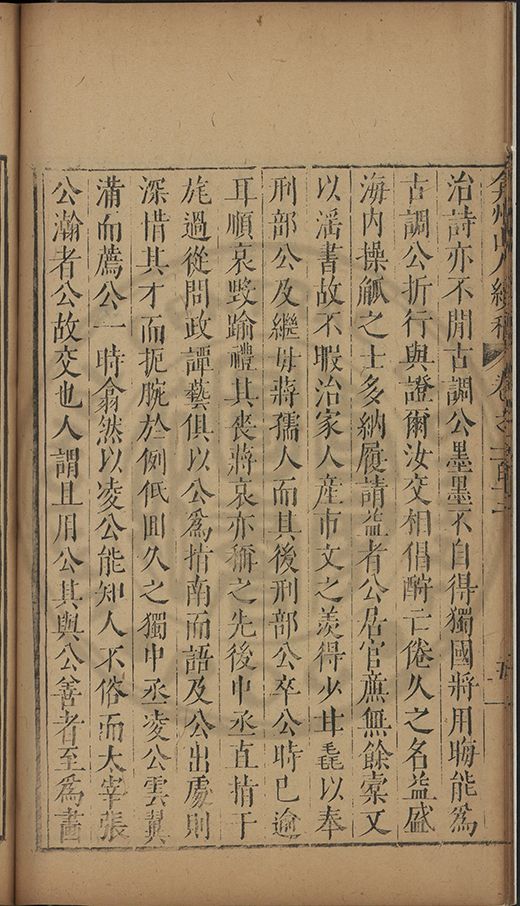 弇州山人續稿 卷之一百十二 五
治詩亦不閒古調公墨墨不自得獨國將用晦能爲
古調公折行與證爾汝交相倡酧亡倦久之名益盛
海內操觚之士多納履請益者公居官㢘無餘橐又
以滛書故不暇治家人産市文之羨得少甘毳以奉
刑部公及繼母蔣孺人而其後刑部公卒公時已逾
耳順哀毀踰禮其喪蔣哀亦稱之先後中丞直指干
旄過從問政譚藝俱以公爲指南而語及公出處則
深惜其才而扼腕於例低囬久之獨中丞凌公雲翼
滿而薦公一時翕然以凌公能知人不俗而太宰張
公瀚者公故交也人謂且用公其與公善者至爲畫